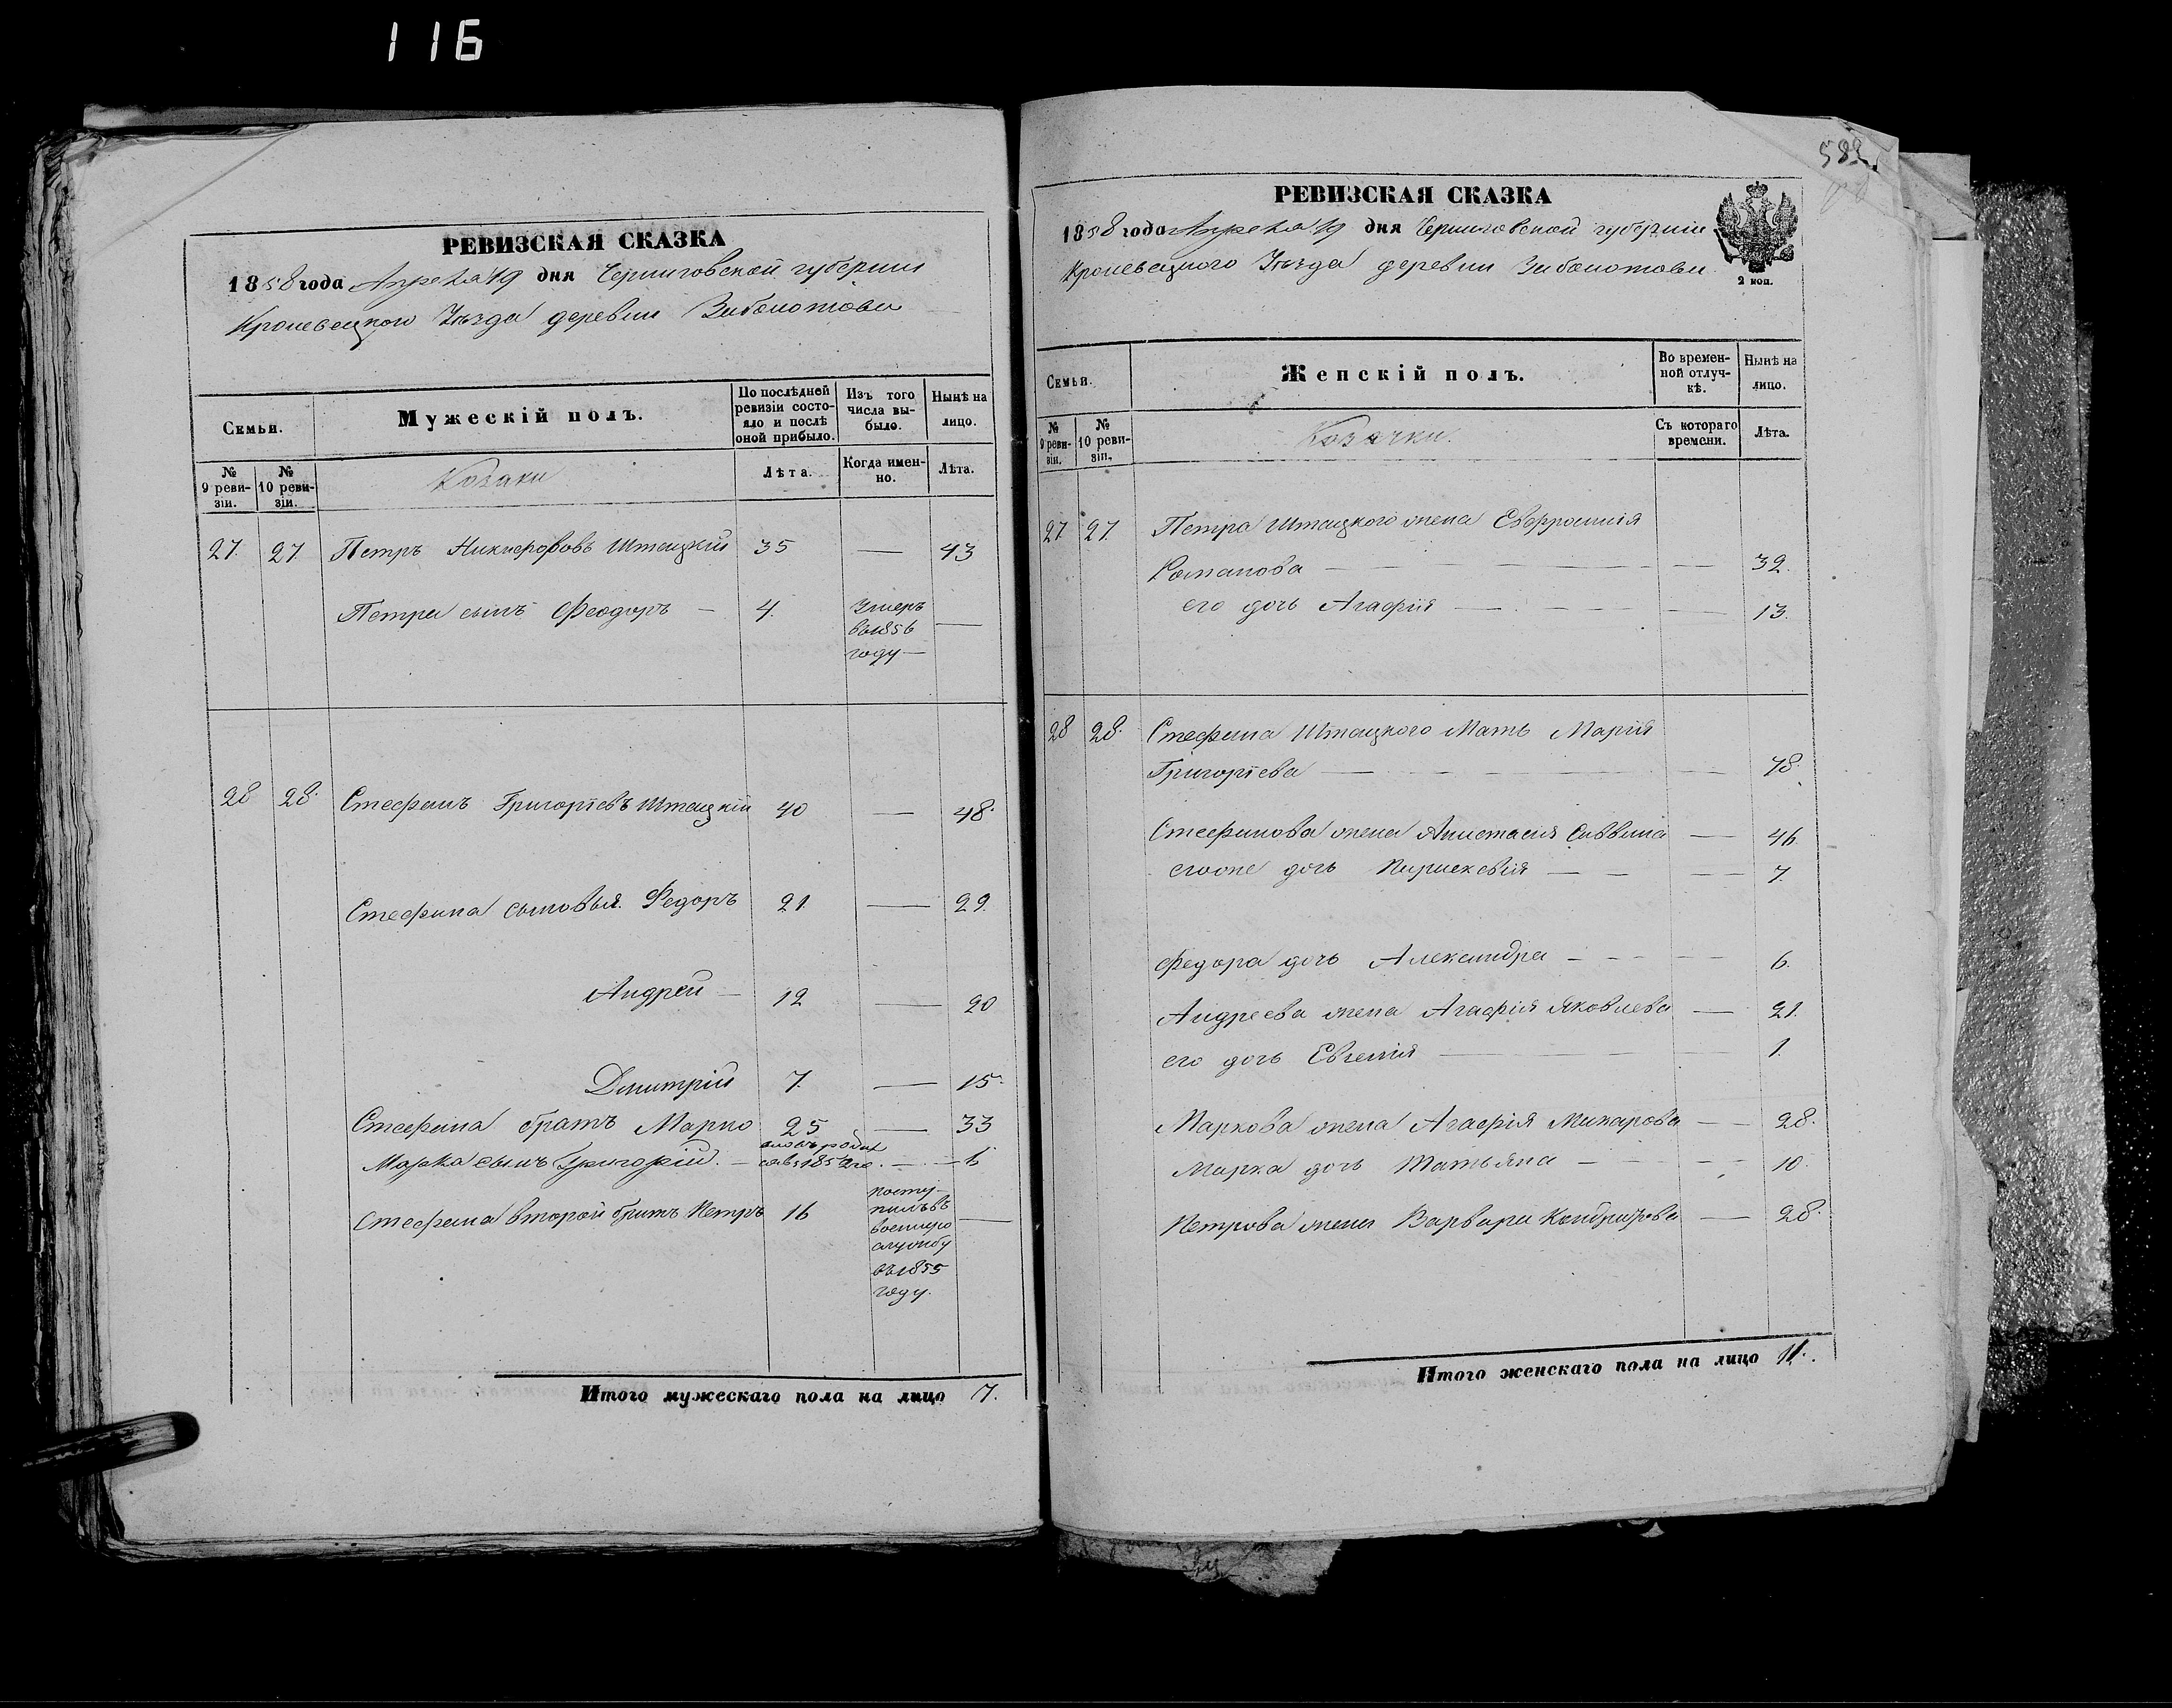 116
РЕВИЗСКАЯ СКАЗКА
1858 года Апреля 19 дня Черниговской губернии
Кролевецкого Уѣзда деревни Заболотова
Семьи.
Мужескій полъ.
По послѣдней ревизіи состояло и послѣ оной прибыло.
Изъ того числа выбыло.
Нынѣ на лицо.
№ 9 ревизіи.
№ 10 ревизіи.
Козаки
Лѣта.
Когда именно.
Лѣта.
27. 27 Петръ Никифоровъ Штацкий 35 — 43
Петра сынъ Феодоръ — 4. Умеръ
въ 1856 —
году —
28 28. Стефанъ Григоріевъ Штацкій 40 — 48.
Стефана сыновья. Федоръ 21. — 29.
Андрей — 12 — 20
Дмитрій 7. — 15.
Стефана братъ Марко 25 — 33
Марка сынъ Григорій. — 6
Стефана второй братъ Петръ 16 посту-
пилъ въ
военную —
службу
въ 1855
году.
Итого мужескаго пола на лицо 7.
583
РЕВИЗСКАЯ СКАЗКА
1858 года Апреля 19 дня Черниговской губерніи
Кролевецкого Уѣзда деревни Заболотова
2 коп.
Семьи.
Женскій полъ.
Во временной отлучкѣ.
Нынѣ на лицо.
№ 9 ревизіи.
№ 10 ревизіи.
Козачки.
Съ котораго времени.
Лѣта.
27. 27. Петра Штацкого жена Евфросинія
Романова — — 32.
его дочь Агафія — — 13.
28 28. Стефана Штацкого Мать Марія
Григоріева — — 78.
Стефанова жена Анастасія Саввина — 46.
егоже дочь Параскевія — — 7.
Федора дочь Александра — — 6.
Андреева жена Агафія Яковлева — 21.
его дочь Евгенія — — 1.
Маркова жена Агафія Макарова — 28.
Марка дочь Татьяна — — 10.
Петрова жена Варвара Кондратова — 28.
Итого женскаго пола на лицо 11.